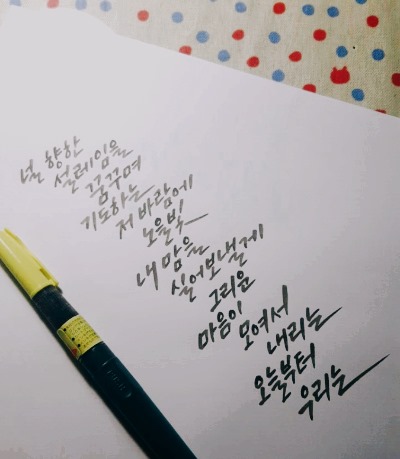 널 향한
설레임을
꿈꾸며
기도하는
저 바람에
노을빛
내 맘을
실어보낼게
그리운
마음이
모여서
내리는
오늘부터
우리는